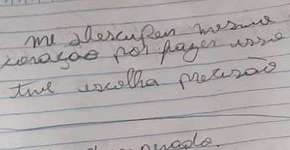 me desculpem mesmo
coração por fazer isso
tive escolha precisão